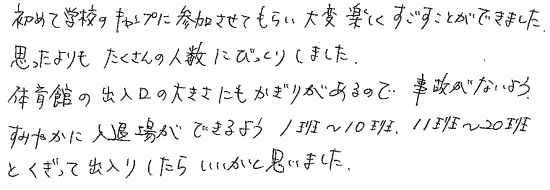 初めて学校のキャンプに参加させてもらい大変楽しくすごすことができました.
思ったよりもたくさんの人数にびっくりしました.
体育館の出入口の大きさにもかぎりがあるので 事故がないよう.
すみやかに入退場ができるよう 1班～10班. 11班～20班
とくぎって出入りしたらいいかと思いました.